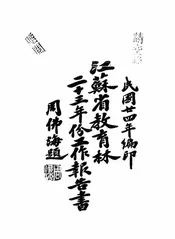 民國廿四年編印
江蘇省教育林
二十三年份工作報告書
周佛海題